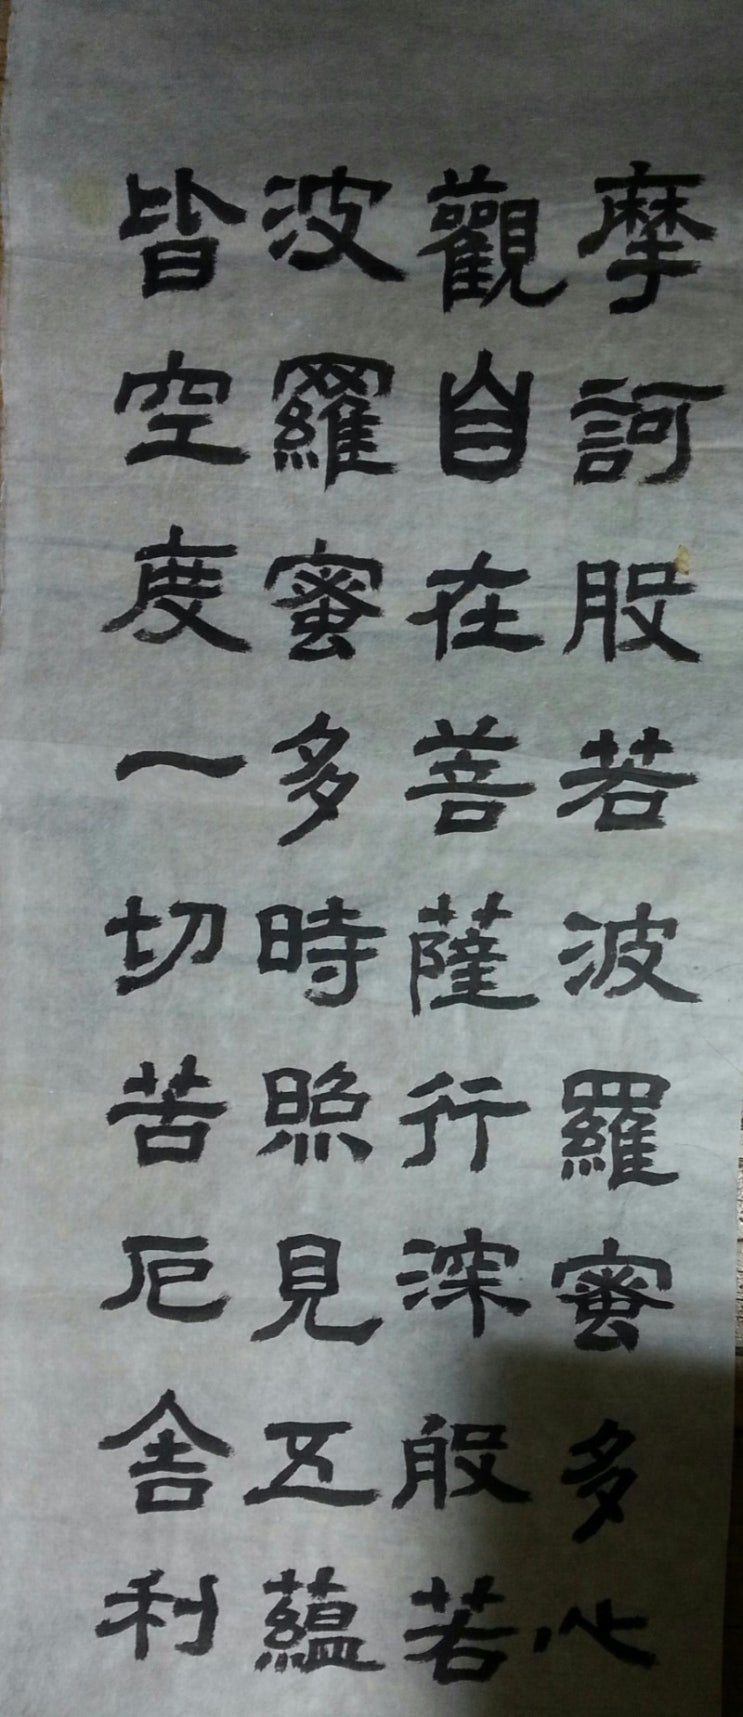 摩訶般若波羅蜜多心
觀自在菩薩行深般若
波羅蜜多時照見五蘊
皆空度一切苦厄舍利